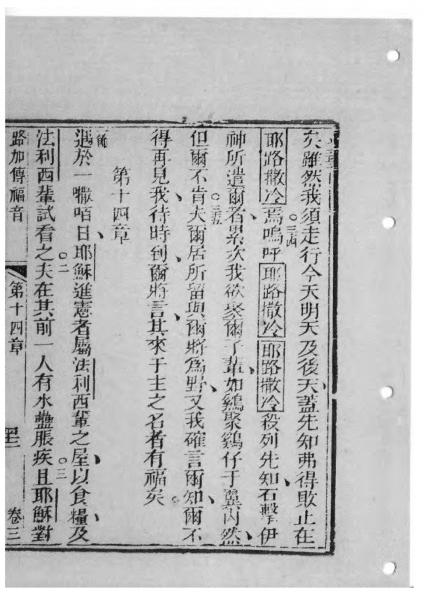 矣雖然我須走行今天明天及後天蓋先知弗得敗止在
耶路撒冷焉嗚呼耶路撒冷耶路撒冷殺列先知石擊伊
三四
神所遣爾者累次我欲聚爾子輩如鷄聚鷄仔于翼內然
但爾不肯夫爾居所留與爾將為野又我確言爾知爾不
三五
得再見我待時到爾將言其來于主之名者有福矣
第十四章
遇於一㘔咟日耶穌進憲者屬法利西輩之屋以食糧及
法利西輩試看之夫在其前一人有水蠱脹疾且耶穌對
二
三
路加傳福音
第十四章
卷三